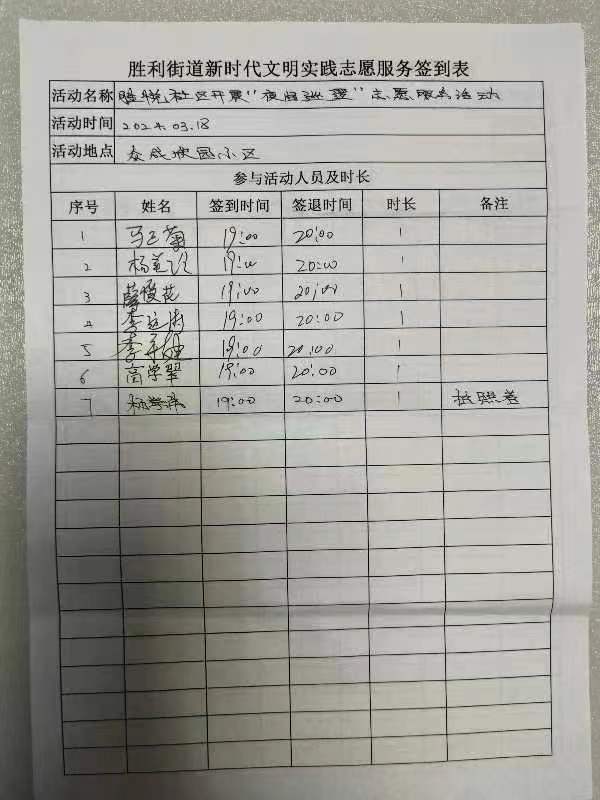 胜利街道新时代文明实践志愿服务签到表
活动名称 胜悦社区开展"夜间巡逻"志愿服务活动
活动时间 2024.03.18
活动地点 小区
参与活动人员及时长
序号 姓名 签到时间 签退时间 时长 备注
1 马三菊 19:00 20:00 1
2 19:00 20:00 1
3 19:00 20:00 1
4 19:00 20:00 1
5 19:00 20:00 1
6 高学翠 19:00 20:00 1
7 19:00 20:00 1 拍照者